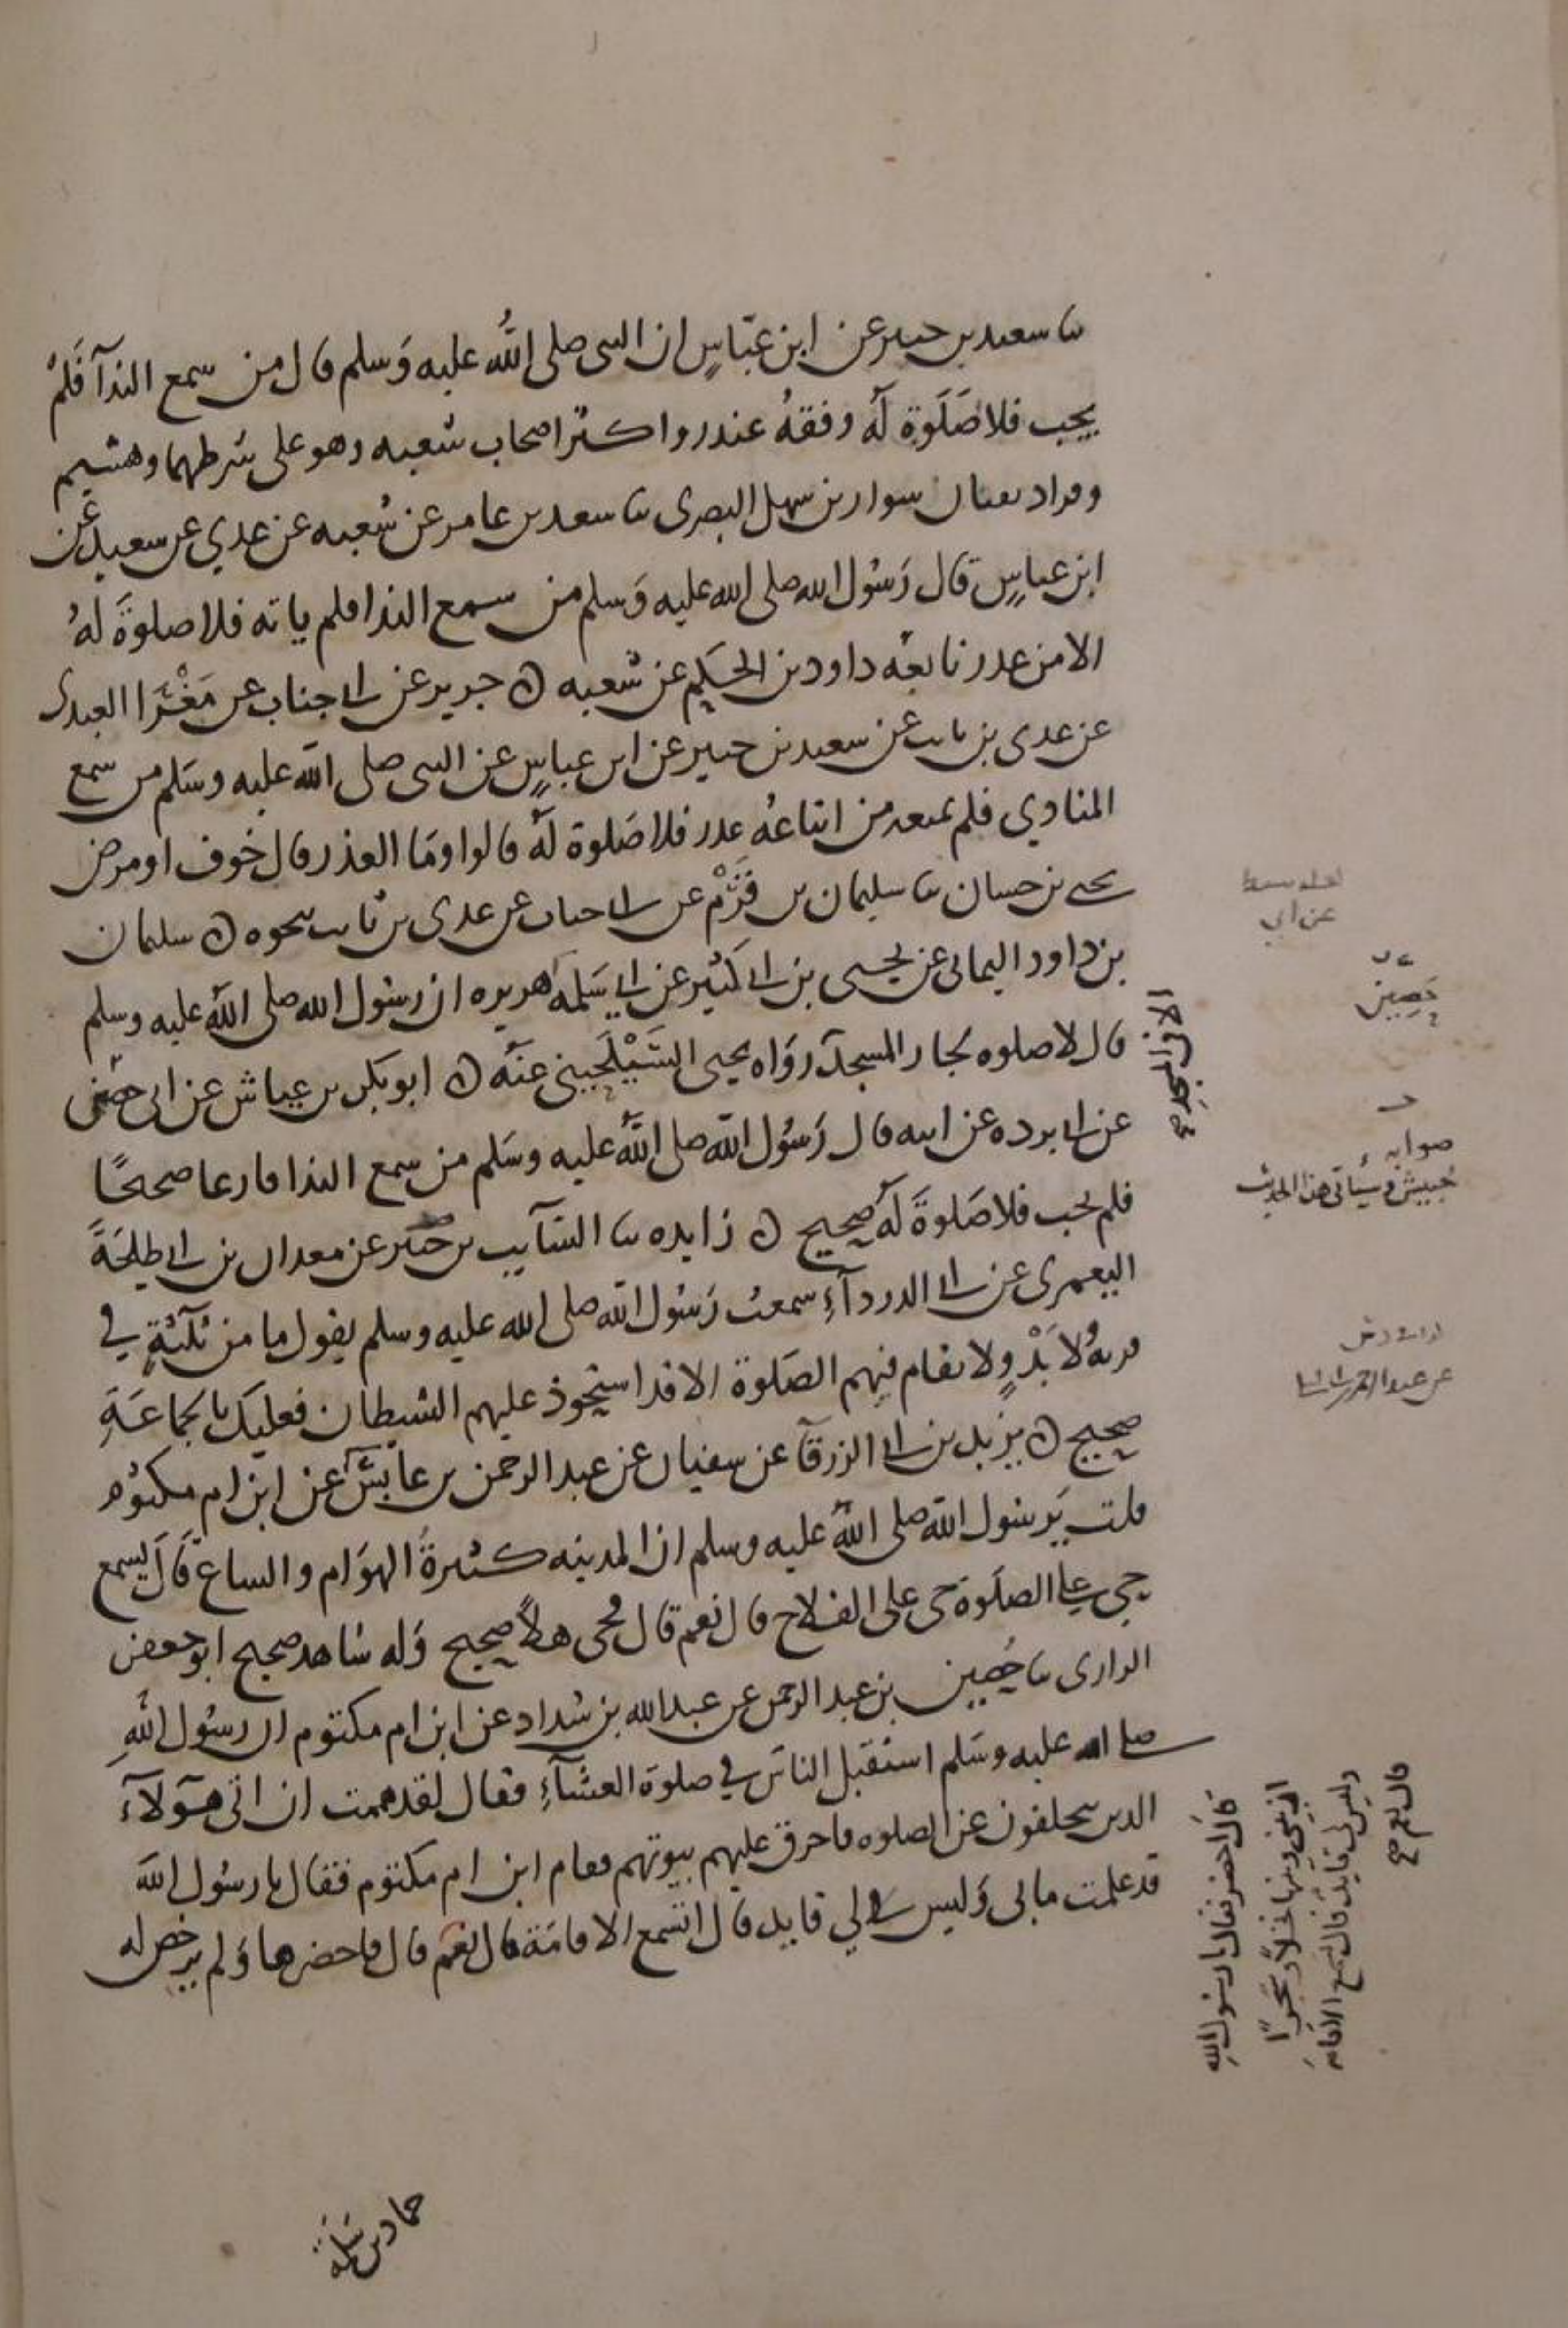 ثنا سعيد بن جبير عن ابن عباس ان النبى صلى الله عليه وسلم قال من سمع الندآ فلم
يجب فلا صلوة له وقفه غندر واكثر اصحاب شعبه وهو على شرطهما وهشيم
وقراد ثقتان سوار بن سهل البصرى ثنا سعيد بن عامر عن شعبه عن عدي عن سعيد عن
ابن عباس قال رسول الله صلى الله عليه وسلم من سمع الندا فلم ياته فلا صلوة له
الا من عذر تابعه داود بن الحكم عن شعبه ن جرير عن ابى جناب عن مغرا العبدى
عن عدى بن ثابت عن سعيد بن جبير عن ابن عباس عن النبى صلى الله عليه وسلم من سمع
المنادي فلم يمنعه من اتباعه عذر فلا صلوة له قالوا وما العذر قال خوف او مرض
يحيى بن حسان ثنا سليمان بن قرم عن ابى جناب عن عدى بن ثابت نحوه ن سليمان
بن داود اليمانى عن يحيى بن ابى كثير عن ابى سلمه هريره ان رسول الله صلى الله عليه وسلم
قال لا صلوه لجار المسجد رواه يحيى السيلحيني عنه ن ابو بكر بن عياش عن ابى حصين
عن ابى برده عن ابيه قال رسول الله صلى الله عليه وسلم من سمع الندا فارغا صحيحا
فلم يجب فلا صلوة له صحيح ن زايده ثنا السآيب بن عن معدان بن ابى طلحة
اليعمرى عن ابى الدردآء سمعت رسول الله صلى الله عليه وسلم يقول ما من ثلثة في
قرية ولا بدو لا تقام فيهم الصلوة الا قد استحوذ عليهم الشيطان فعليك بالجماعة
صحيح ن يزيد بن ابى الزرقآ عن سفيان عن عبد الرحمن بن عابس عن ابن ام مكتوم
قلت يرسول الله صلى الله عليه وسلم ان المدينه كثيرة الهوام والسباع قال تسمع
حى على الصلوة حى على الفلاح قال نعم قال فحى هلا صحيح وله شاهد صحيح ابو جعفر
الرازى ثنا حصين بن عبد الرحمن عن عبد الله بن شداد عن ابن ام مكتوم ان رسول الله
صلى الله عليه وسلم استقبل الناس في صلوة العشآء فقال لقد هممت ان اتى هؤلآء
الذين يتخلفون عن الصلوه فاحرق عليهم بيوتهم فقام ابن ام مكتوم فقال يا رسول الله
قد علمت ما بى وليس لي قايد قال اتسمع الاقامة قال نعم قال فاحضرها ولم يرخص له
عن ابي
حصين
الا فى المسجد صح
صوابه
حبيش وسياتى هذا الحديث
عن عبد الرحمن
قال احضر فقال يا رسول الله
ان بيني وبينها نخلا وشجرا
وليس لى قايد قال تسمع الاقامة
قال نعم صح
حماد بن سلمة